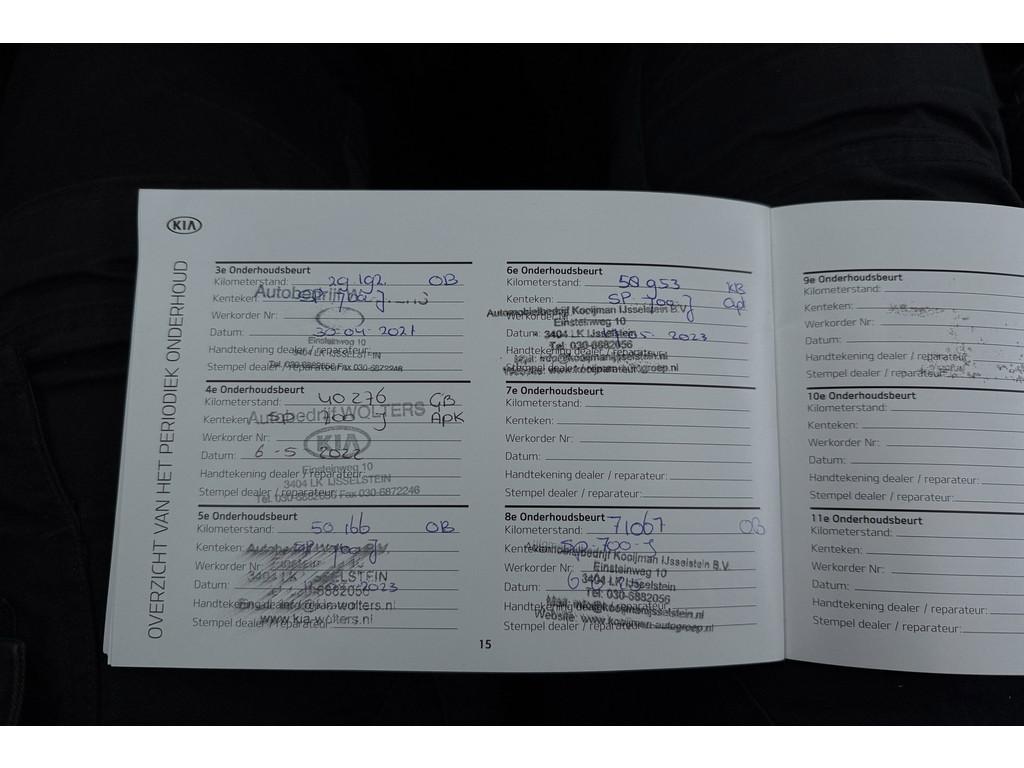 KIA
OVERZICHT VAN HET PERIODIEK ONDERHOUD
3e Onderhoudsbeurt
Kilometerstand: 29.192 OB
Kenteken: SP 700-J
Autobedrijf
Werkorder Nr:
Datum: 30-04-2021
Einsteinweg 10
Handtekening dealer / reparateur:
3404 LK IJSSELSTEIN
Stempel dealer / reparateur:
Tel. 030-6882056 Fax 030-6872246
4e Onderhoudsbeurt
Kilometerstand: 40276 GB
Kenteken: SP 700 J APK
Autobedrijf WOLTERS
Werkorder Nr:
KIA
Datum: 6-5 2022
Einsteinweg 10
Handtekening dealer / reparateur:
3404 LK IJSSELSTEIN
Stempel dealer / reparateur:
Tel. 030-6882056 Fax 030-6872246
5e Onderhoudsbeurt
Kilometerstand: 50 166 OB
Kenteken: SP 700 J
Autobedrijf Wolters B.V.
Werkorder Nr:
3404 LK IJSSELSTEIN
Datum: 2023
6882056
Handtekening dealer
info@kia-wolters.nl
www.kia-wolters.nl
Stempel dealer / reparateur:
6e Onderhoudsbeurt
Kilometerstand: 58 953 KB
Kenteken: SP-700-J apk
Automobielbedrijf Kooijman IJsselstein B.V.
Werkorder Nr
Einsteinweg 10
Datum: 5-2023
3404 LK IJsselstein
Tel. 030-6882056
Handtekening dealer / reparateur:
kooijmanijsselstein.nl
Stempel dealer / reparateur:
7e Onderhoudsbeurt
Kilometerstand:
Kenteken:
Werkorder Nr:
Datum:
Handtekening dealer / reparateur:
Stempel dealer / reparateur:
8e Onderhoudsbeurt
Kilometerstand: 71067 OB
Kenteken: SP-700-J
Automobielbedrijf Kooijman IJsselstein B.V.
Werkorder Nr:
Einsteinweg 10
Datum:
3404 LK IJsselstein
Tel: 030-6882056
Handtekening dealer / reparateur:
kooijmanijsselstein.nl
Website: www.kooijman-autogroep.nl
Stempel dealer / reparateur:
15
9e Onderhoudsbeurt
Kilometerstand:
Kenteken:
Werkorder Nr:
Datum:
Handtekening dealer / reparateur:
Stempel dealer / reparateur:
10e Onderhoudsbeurt
Kilometerstand:
Kenteken:
Werkorder Nr:
Datum:
Handtekening dealer / reparateur:
Stempel dealer / reparateur:
11e Onderhoudsbeurt
Kilometerstand:
Kenteken:
Werkorder Nr:
Datum:
Handtekening dealer / reparateur:
Stempel dealer / reparateur: